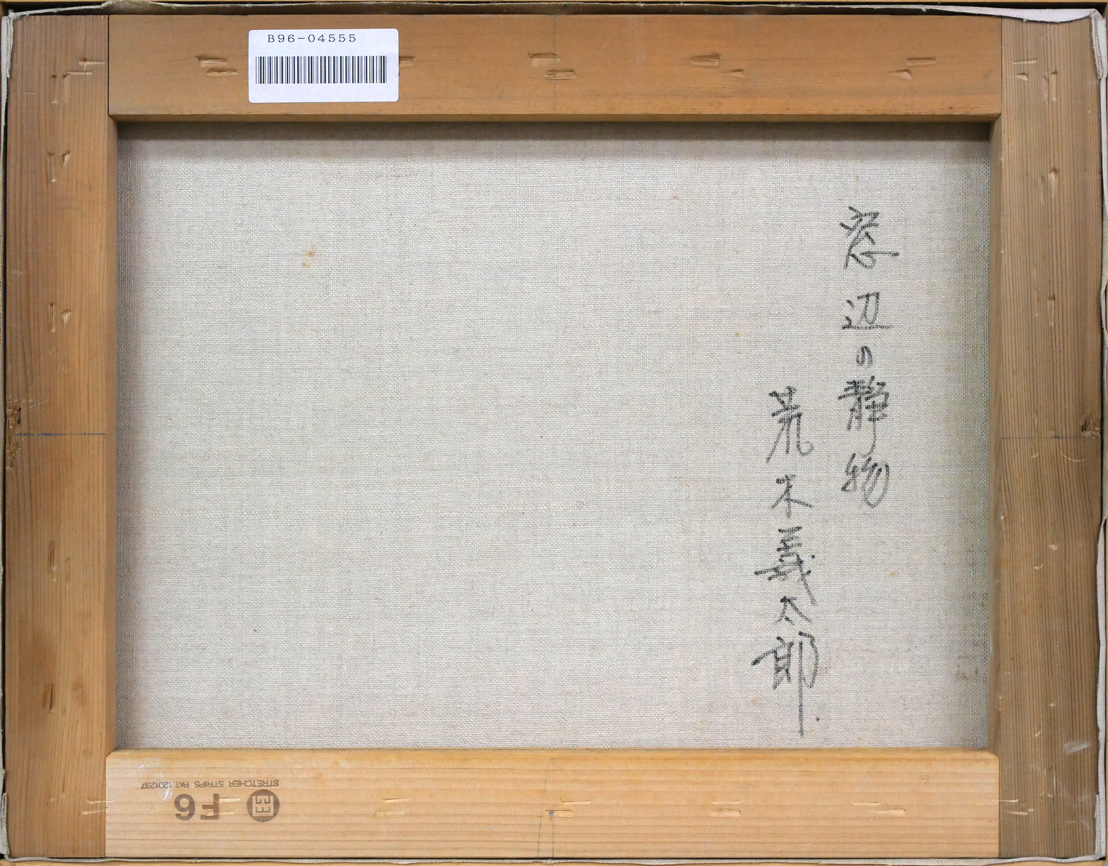 B96-04555
窓辺の静物
荒木義太郎
STRETCHER STRIPS PAT.1201237
F6